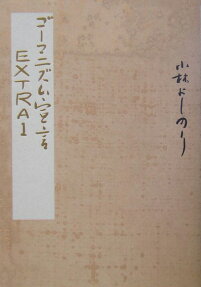 ゴーマニズム宣言
EXTRA 1
小林よしのり